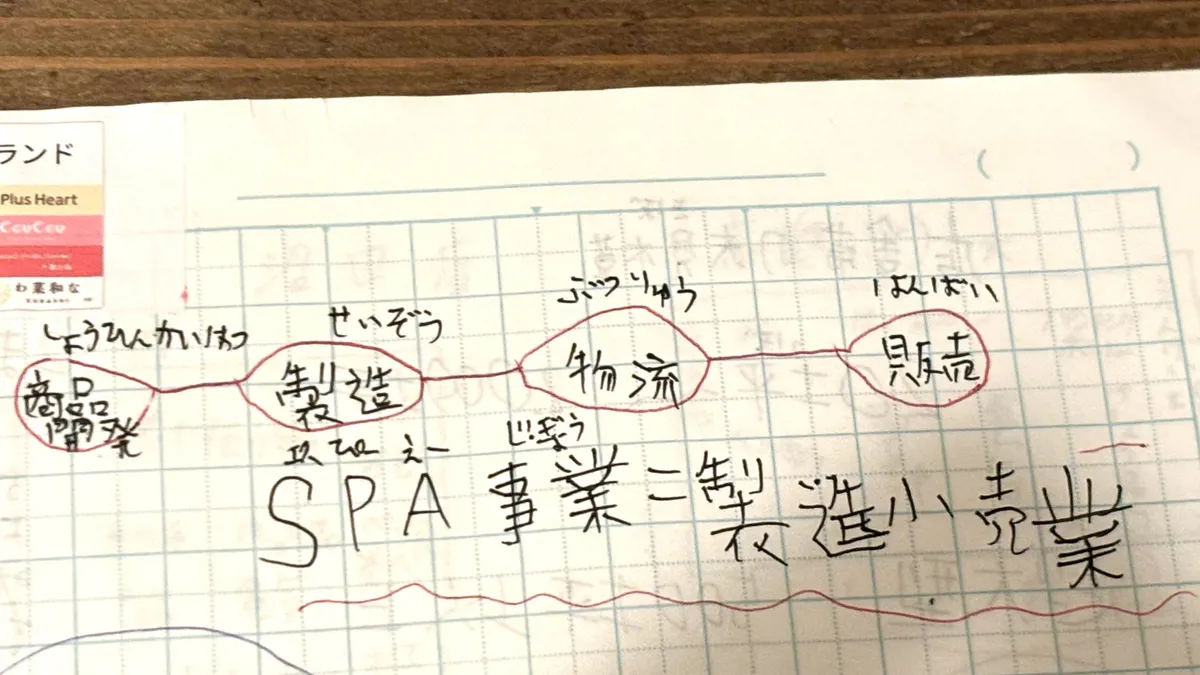 ランド
Plus Heart
CouCou
わ菓和な
しょうひんかいはつ せいぞう ぶつりゅう はんばい
商品開発 製造 物流 販売
えす ぴー えー じぎょう
SPA事業=製造小売業
( )